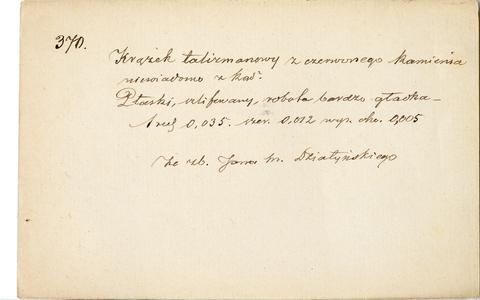 370.
Krążek talizmanowy z czerwonego kamienia
niewiadomo z kąd.
Płaski, szlifowany, robota bardzo gładka –
0,035. szer. 0,012 wys. oko. 0,005
Ze zb. Jana hr. Działyńskiego